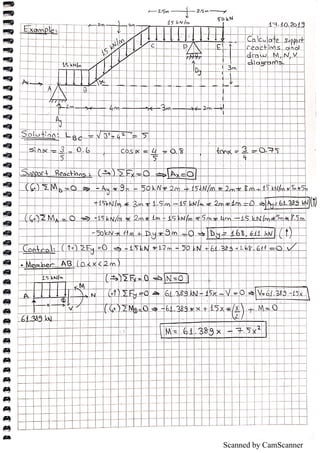 2.5m 2.5m
50kN
Example:
2m
15 kN/m
14.10.2019
15 kN/m
C D E
Calculate support
reactions and
draw M, N, V
diagrams.
3m
15 kN/m
Dy
Ax
A B α
Ay
2m 4m 3m 2m
Solution: L_BC = √3²+4² = 5
sinα = 3/5 = 0.6 cosα = 4/5 = 0.8 , tanα = 3/4 = 0.75
Support Reactions: (→+) ΣFx=0 ⇒ Ax=0
ΣM_D=0 ⇒ -Ay*9m - 50kN*2m + 15kN/m*2m*8m + 15kN/m*5m*5m
+15kN/m*3m*1.5m - 15kN/m*2m*1m=0 ⇒ Ay=61.389 kN (↑)
ΣM_A=0 ⇒ -15kN/m*2m*1m - 15kN/m*5m*4m - 15 kN/m*5m*8.5m
-50kN*11m + Dy*9m=0 ⇒ Dy=168,611 kN (↑)
Control: (↑+) ΣFy=0 ⇒ -15kN*12m - 50kN + 61.389 + 168.611 = 0 ✓
• Member AB (0<x<2m)
15 kN/m
(→+) ΣFx=0 ⇒ N=0
A M N V x
(+↑) ΣFy=0 ⇒ 61.389 kN - 15x - V = 0 ⇒ V=61.389-15x
61.389 kN
ΣM=0 ⇒ -61.389*x + 15x*(x/2) + M=0
M = 61.389x - 7.5x²
Scanned by CamScanner